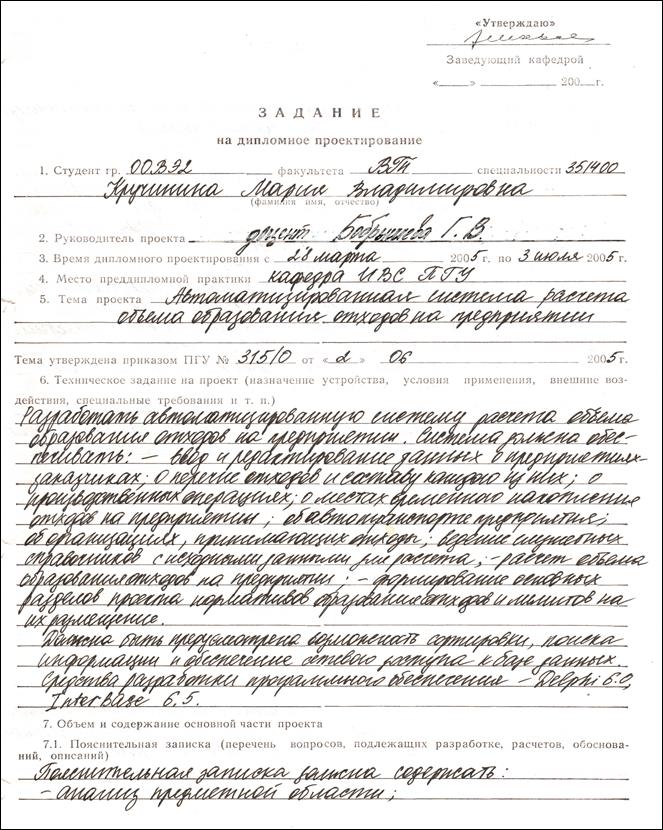 «Утверждаю»
Заведующий кафедрой
«____» ________ 200__г.
ЗАДАНИЕ
на дипломное проектирование
1. Студент гр. 00ВЭ2 факультета ВТ специальности 351400
Кручинина Мария Владимировна
(фамилия имя, отчество)
2. Руководитель проекта доцент Г. В.
3. Время дипломного проектирования с 28 марта 2005 г. по 3 июля 2005 г.
4. Место преддипломной практики кафедра ИВС ПГУ
5. Тема проекта Автоматизированная система расчета
объема образования отходов на предприятии
Тема утверждена приказом ПГУ № 315/0 от «2» 06 2005 г.
6. Техническое задание на проект (назначение устройства, условия применения, внешние воз-
действия, специальные требования и т. п.)
Разработать автоматизированную систему расчета объема
образования отходов на предприятии. Система должна обес-
печивать: – ввод и редактирование данных о предприятиях-
заказчиках; о перечне отходов и составу каждого из них; о
производственных операциях; о местах временного накопления
отходов на предприятии; об автотранспорте предприятия;
об организациях, принимающих отходы; ведение
справочников с исходными данными для расчета; – расчет объема
образования отходов на предприятии; – формирование основных
разделов проекта нормативов образования отходов и лимитов на
их размещение.
Должна быть предусмотрена возможность сортировки, поиска
информации и обеспечение сетевого доступа к базе данных.
Средства разработки программного обеспечения – Delphi 6.0,
InterBase 6.5.
7. Объем и содержание основной части проекта
7.1. Пояснительная записка (перечень вопросов, подлежащих разработке, расчетов, обоснова-
ний, описаний)
Пояснительная записка должна содержать:
– анализ предметной области;